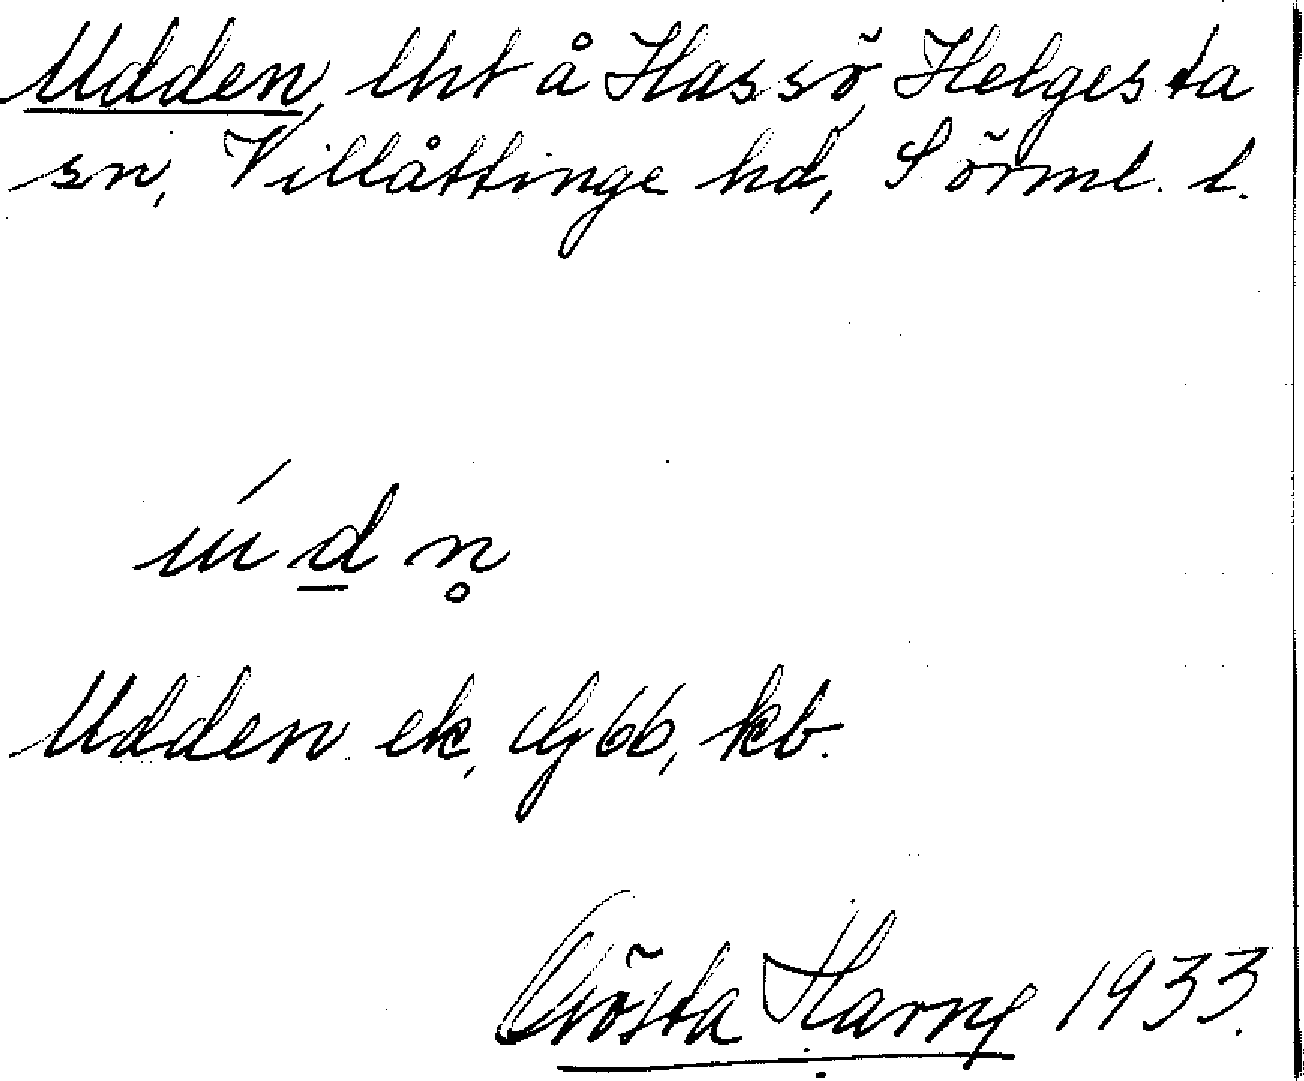 Udden, lht å Hassö, Helgesta
sn, Villåttinge hd, Sörml. l.
ú d n̥
Udden ek, G 66, kb.
Gösta Harry 1933.